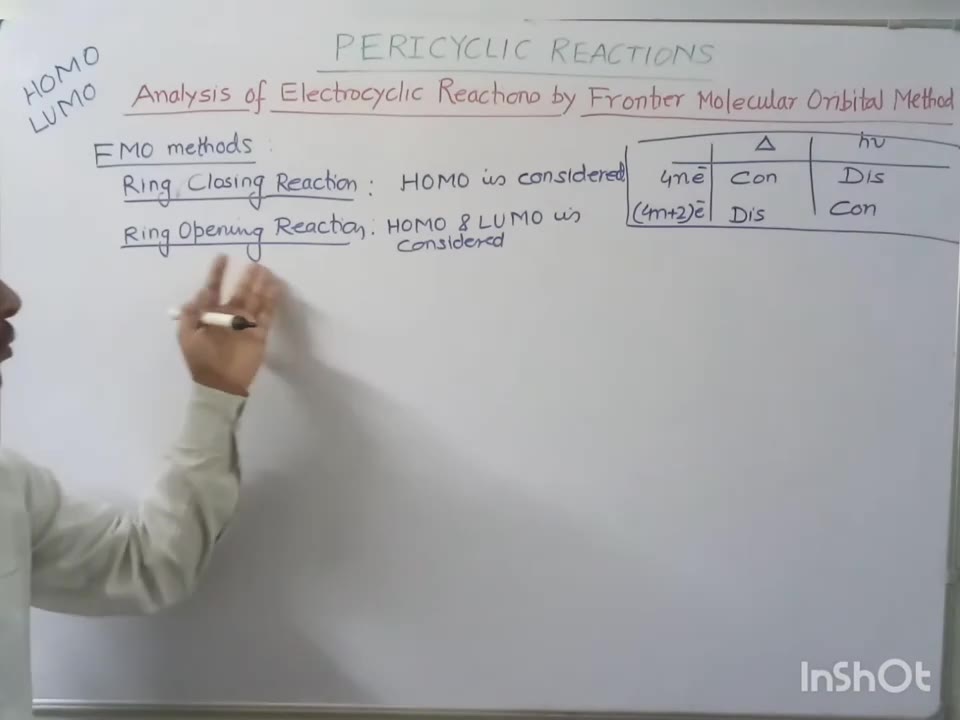 HOMO
LUMO
PERICYCLIC REACTIONS
Analysis of Electrocyclic Reactions by Frontier Molecular Orbital Method
FMO methods :
Ring Closing Reaction : HOMO is considered
Ring Opening Reaction : HOMO & LUMO is
considered
Δ hν
4nē Con Dis
(4n+2)ē Dis Con
InShOt